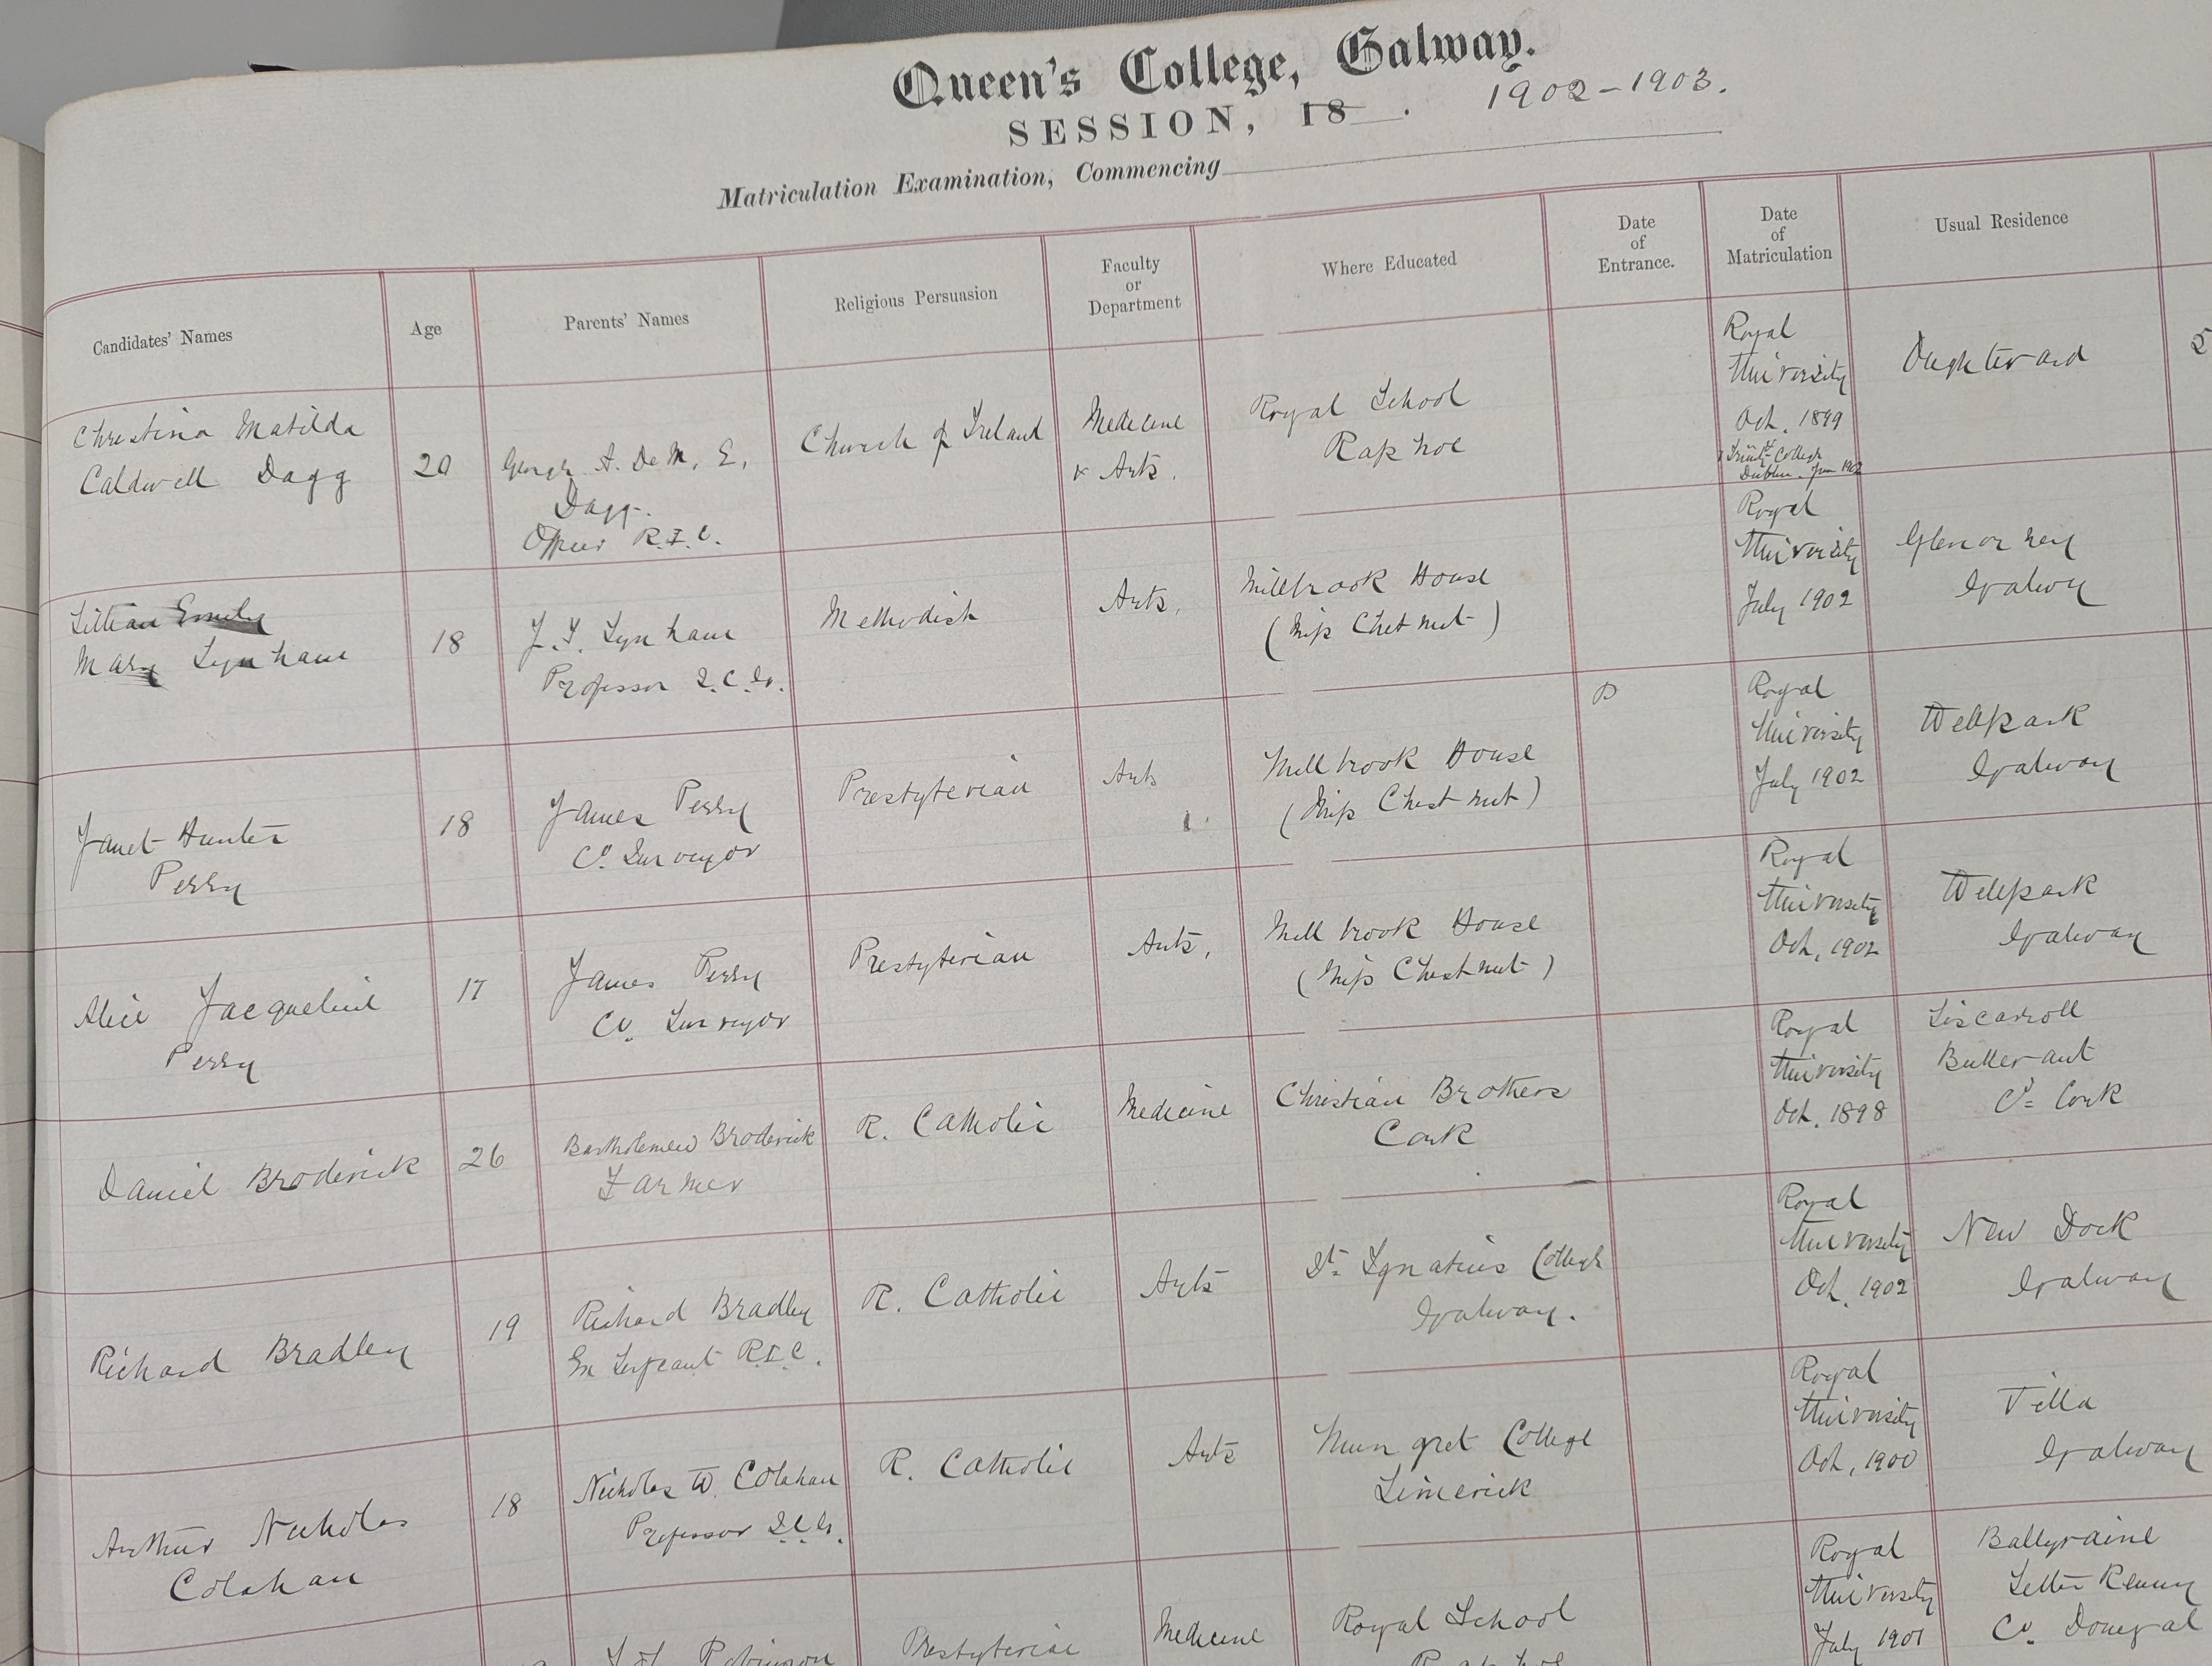 Queen's College, Galway.
SESSION, 18 . 1902-1903.
Matriculation Examination, Commencing
Candidates' Names
Age
Parents' Names
Religious Persuasion
Faculty
or
Department
Where Educated
Date
of
Entrance.
Date
of
Matriculation
Usual Residence
Christina Matilda
Caldwell Dagg
20
George A. DeM. E.
Dagg.
Officer R.I.C.
Church of Ireland
Medicine
& Arts.
Royal School
Raphoe
Royal
University
Oct. 1899
& Trinity College
Dublin. Jun 1902
Oughterard
Lillian Emily
Mary Lynham
18
J. I. Lynham
Professor Q.C.G.
Methodist
Arts.
Millbrook House
(Miss Chetnut)
Royal
University
July 1902
Galway
Janet Hunter
Perry
18
James Perry
Co. Surveyor
Presbyterian
Arts
Millbrook House
(Miss Chestnut)
Royal
University
July 1902
Wellpark
Galway
Alice Jacqueline
Perry
17
James Perry
Co. Surveyor
Presbyterian
Arts,
Millbrook House
(Miss Chestnut)
Royal
University
Oct, 1902
Wellpark
Galway
Daniel Broderick
26
Bartholemew Broderick
Farmer
R. Catholic
Medicine
Christian Brothers
Cork
Royal
University
Oct. 1898
Liscarroll
Butterant
Co. Cork
Richard Bradley
19
Richard Bradley
Ex Sergeant R.I.C.
R. Catholic
Arts
St. Ignatius College
Galway.
Royal
University
Oct. 1902
New Dock
Galway
Arthur Nicholas
Colahan
18
Nicholas W. Colahan
Professor Q.C.G.
R. Catholic
Arts
Mungret College
Limerick
Royal
University
Oct, 1900
Villa
Galway
Robinson
Presbyterian
Medicine
Royal School
Raphoe
Royal
University
July 1901
Ballyraine
Letter Kenny
Co. Donegal